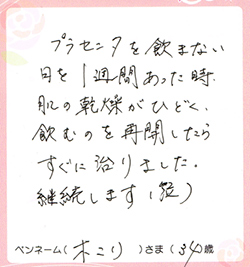 プラセンタを飲まない
日を1週間あった時、
肌の乾燥がひどく、
飲むのを再開したら
すぐに治りました。
継続します(笑)
ペンネーム(木こり)さま(34歳